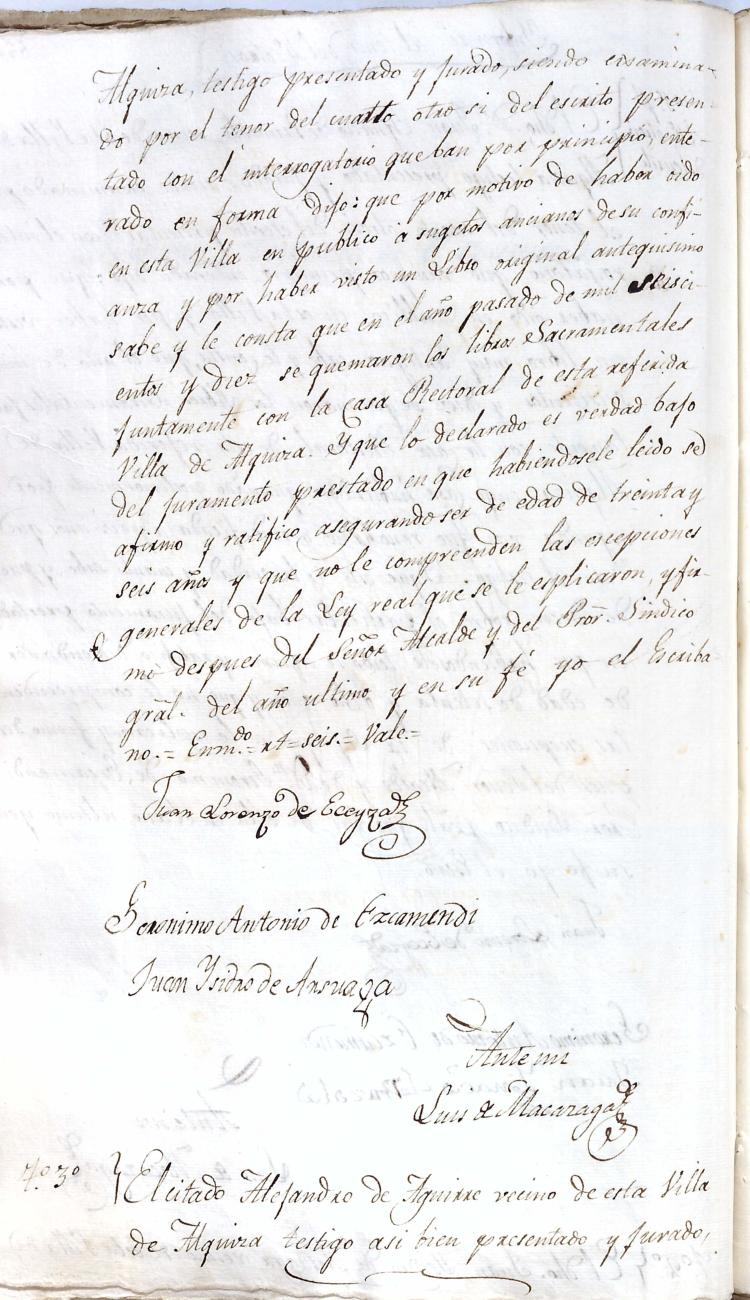 Alquiza, testigo presentado y jurado, siendo ecsamina-
do por el tenor del cuarto otro si del escrito presen-
tado con el interrogatorio que ban por principio, ente-
rado en forma dijo: que por motivo de haber oido
en esta Villa en publico á sugetos ancianos de su confi-
anza y por haber visto un Libro original antequisimo
sabe y le consta que en el año pasado de mil seisci-
entos y diez se quemaron los libros Sacramentales
juntamente con la Casa Rectoral de esta referida
Villa de Alquiza. Y que lo declarado es verdad bajo
del juramento prestado en que habiendosele leido se
afirmo y ratifico asegurando ser de edad de treinta y
seis años y que no le compreenden las escepciones
generales de la Ley real que se le esplicaron, y fir-
mó despues del Señor Alcalde y del Pror. Sindico
gral. del año ultimo y en su fé yo el Escriba-
no.= Enmdo.= rt= seis.= Vale.=
Juan Lorenzo de Eceyza
Geronimo Antonio de Ezcamendi
Juan Ysidro de Ansuaga
Ante mi
Luis de Macazaga
4.º 3º El citado Alejandro de Aguirre vecino de esta Villa
de Alquiza testigo asi bien presentado y jurado,